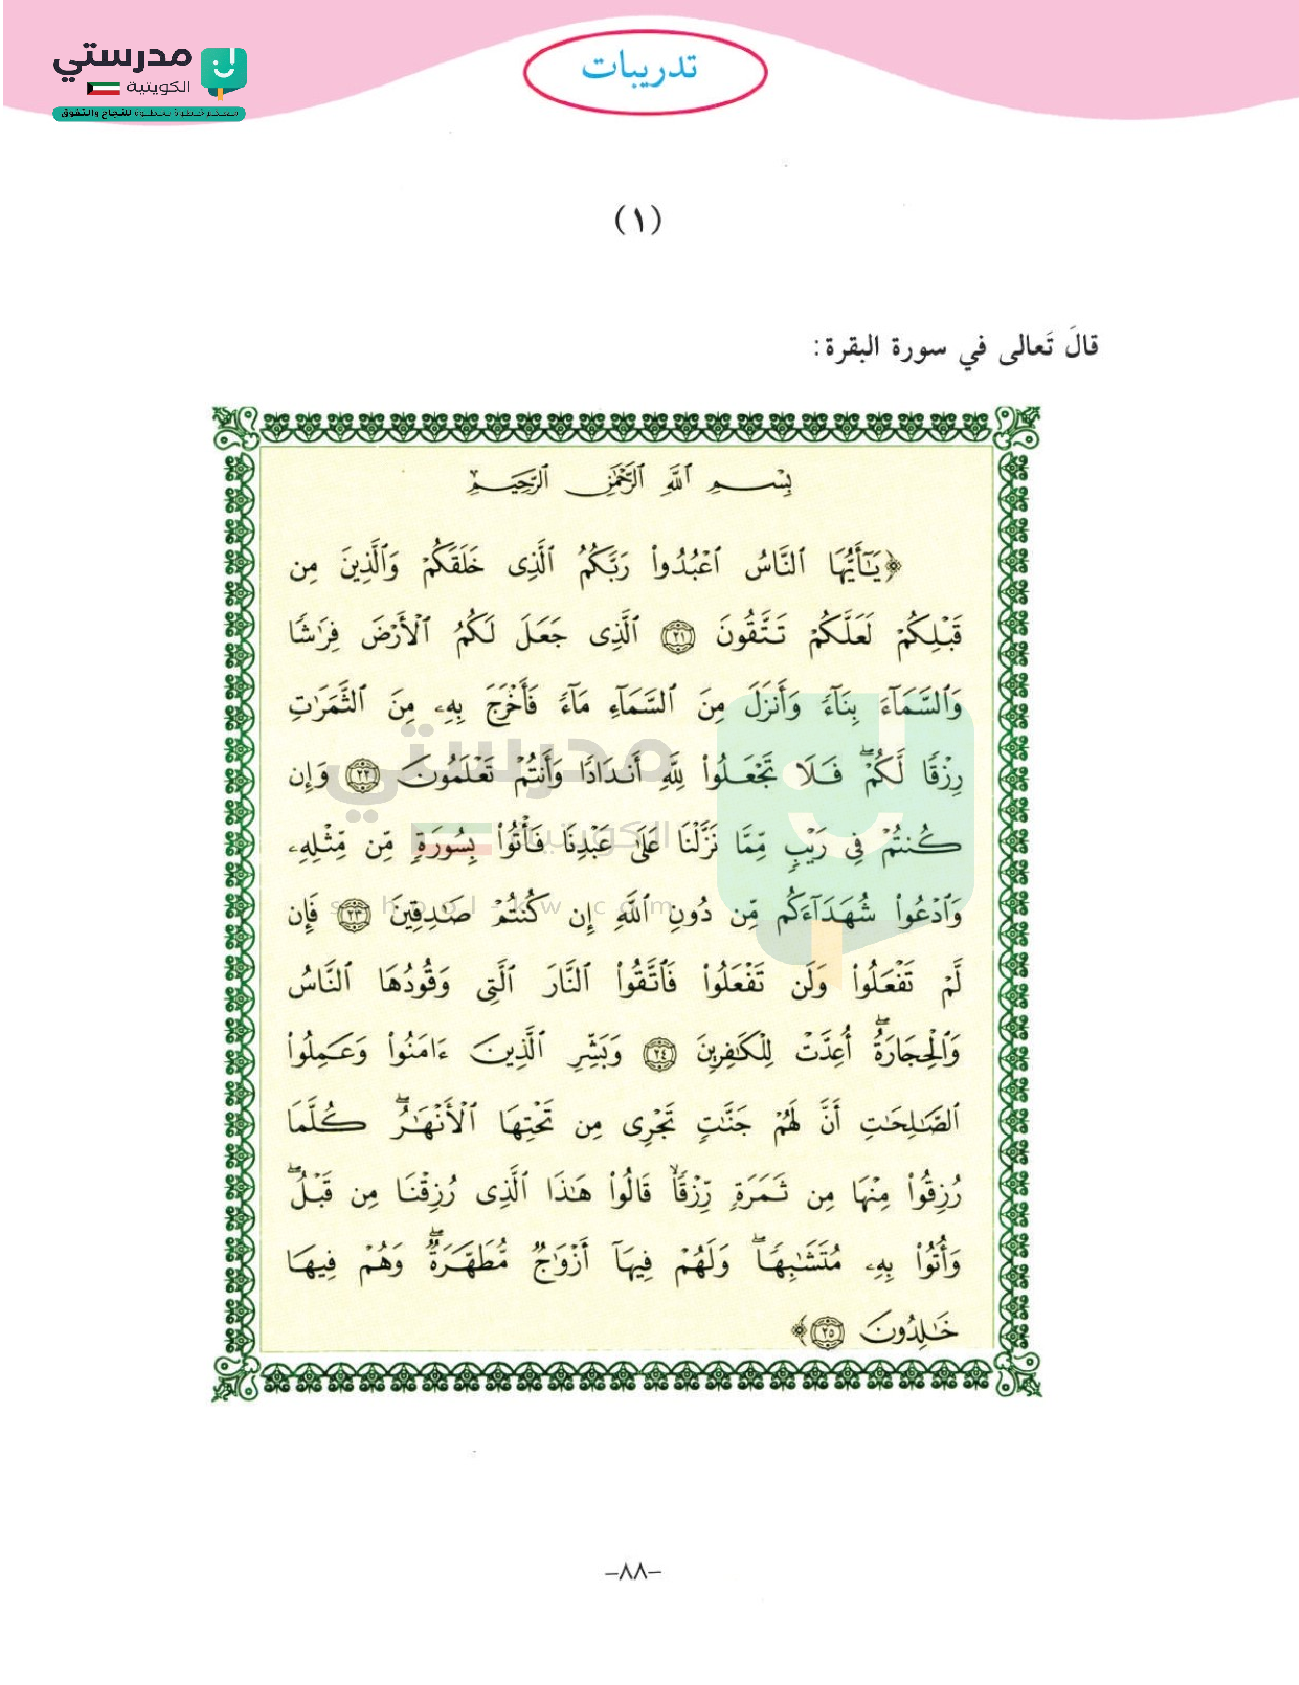 تدريبات
مدرستي
الكويتية
(١)
قالَ تَعالى في سورة البقرة:
بِسْمِ ٱللَّهِ ٱلرَّحْمَٰنِ ٱلرَّحِيمِ
﴿يَٰٓأَيُّهَا ٱلنَّاسُ ٱعْبُدُوا۟ رَبَّكُمُ ٱلَّذِى خَلَقَكُمْ وَٱلَّذِينَ مِن
قَبْلِكُمْ لَعَلَّكُمْ تَتَّقُونَ ٢١ ٱلَّذِى جَعَلَ لَكُمُ ٱلْأَرْضَ فِرَٰشًا
وَٱلسَّمَآءَ بِنَآءً وَأَنزَلَ مِنَ ٱلسَّمَآءِ مَآءً فَأَخْرَجَ بِهِۦ مِنَ ٱلثَّمَرَٰتِ
رِزْقًا لَّكُمْ ۖ فَلَا تَجْعَلُوا۟ لِلَّهِ أَندَادًا وَأَنتُمْ تَعْلَمُونَ ٢٢ وَإِن
كُنتُمْ فِى رَيْبٍ مِّمَّا نَزَّلْنَا عَلَىٰ عَبْدِنَا فَأْتُوا۟ بِسُورَةٍ مِّن مِّثْلِهِۦ
وَٱدْعُوا۟ شُهَدَآءَكُم مِّن دُونِ ٱللَّهِ إِن كُنتُمْ صَٰدِقِينَ ٢٣ فَإِن
لَّمْ تَفْعَلُوا۟ وَلَن تَفْعَلُوا۟ فَٱتَّقُوا۟ ٱلنَّارَ ٱلَّتِى وَقُودُهَا ٱلنَّاسُ
وَٱلْحِجَارَةُ ۖ أُعِدَّتْ لِلْكَٰفِرِينَ ٢٤ وَبَشِّرِ ٱلَّذِينَ ءَامَنُوا۟ وَعَمِلُوا۟
ٱلصَّٰلِحَٰتِ أَنَّ لَهُمْ جَنَّٰتٍ تَجْرِى مِن تَحْتِهَا ٱلْأَنْهَٰرُ ۖ كُلَّمَا
رُزِقُوا۟ مِنْهَا مِن ثَمَرَةٍ رِّزْقًا ۙ قَالُوا۟ هَٰذَا ٱلَّذِى رُزِقْنَا مِن قَبْلُ ۖ
وَأُتُوا۟ بِهِۦ مُتَشَٰبِهًا ۖ وَلَهُمْ فِيهَآ أَزْوَٰجٌ مُّطَهَّرَةٌ ۖ وَهُمْ فِيهَا
خَٰلِدُونَ ٢٥﴾
مدرستي
الكويتية
–٨٨–